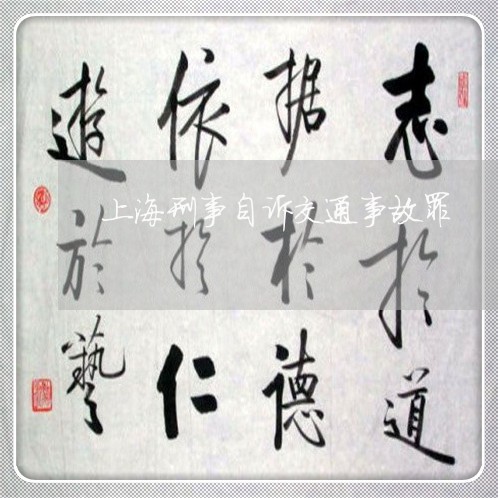 志於道
据於德
依於仁
遊於藝
上海刑事自诉交通事故罪